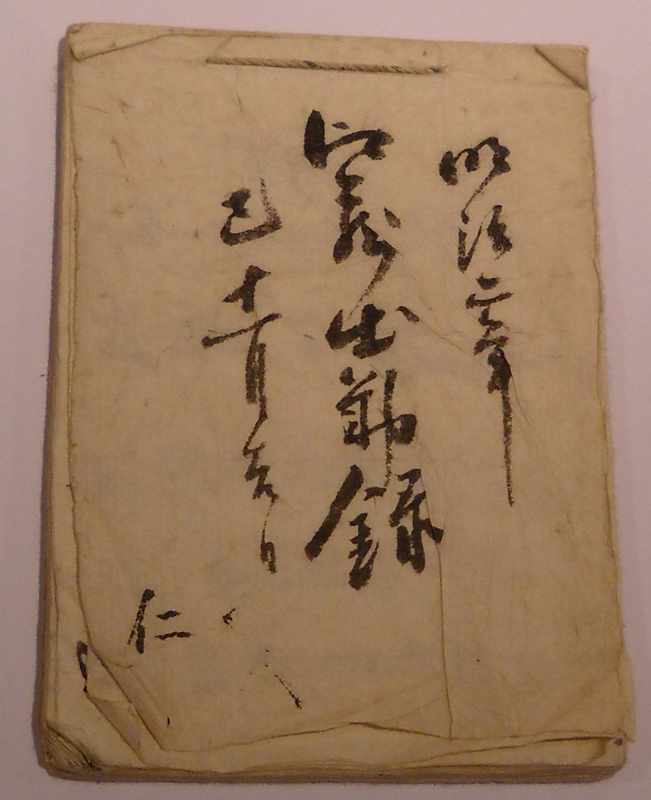 明治二年
出勤録
巳十一月吉日
仁